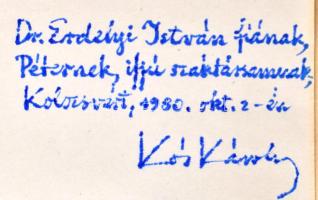 Dr. Erdélyi István fiának,
Péternek, ifjú szaktársamnak,
Kolozsvárt, 1980. okt. 2-án
Kós Károly